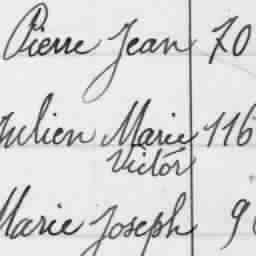 Pierre Jean 70
Julien Marie 116
Victor
Marie Joseph 9